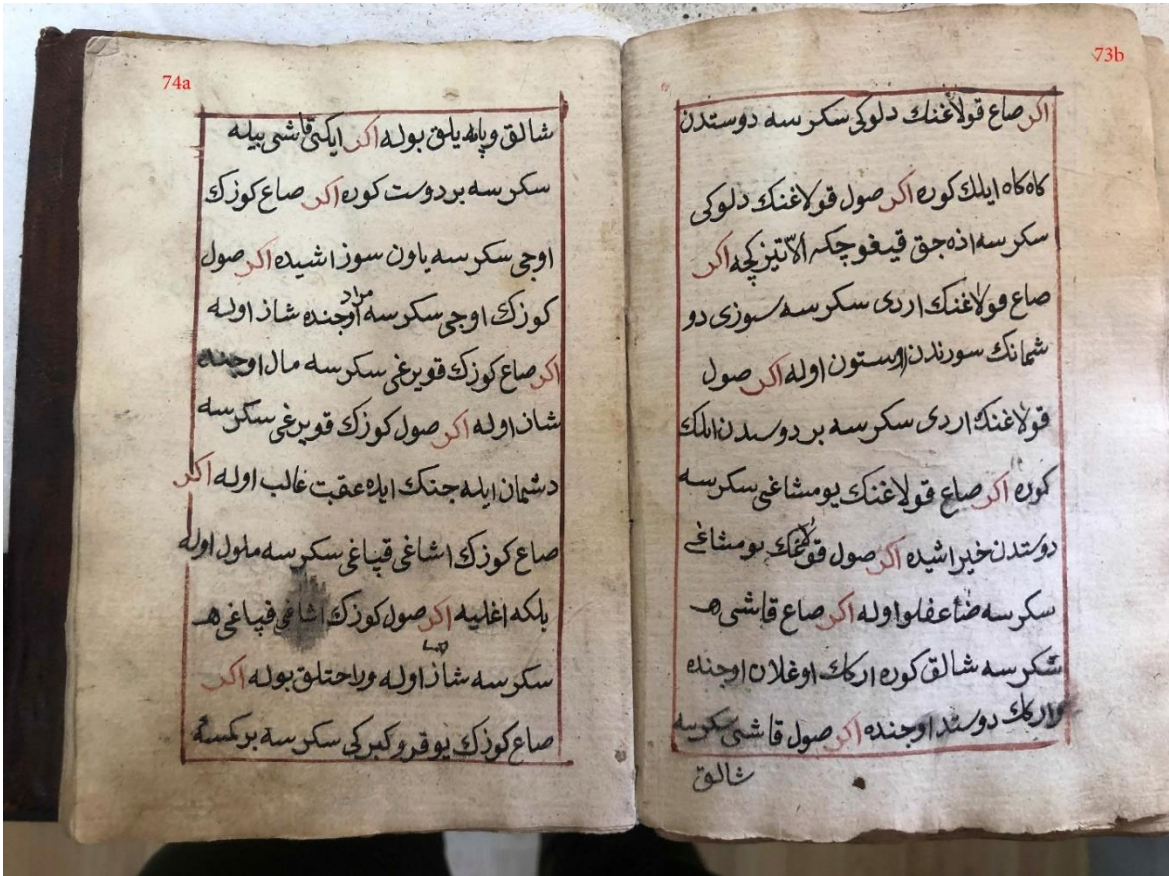 73b
اكر صاع قولاغنك دلوكى سكرسه دوستدن
كاه كاه ايلك كوره اكر صول قولاغنك دلوكى
سكرسه اذه جق قيغو چكه الّا تيز كچه اكر
صاع قولاغنك اردى سكرسه سوزى دو
شمانك سوزندن اوستون اوله اكر صول
قولاغنك اردى سكرسه بر دوستدن ايلك
كوره اكر صاع قولاغنك يومشاغى سكرسه
دوستدن خبر اشيده اكر صول قولاغنك يومشاغى
سكرسه اوله اكر صاع قاشى
سكرسه شالق كوره اركك اوغلان اوجنده
واركك دوستد اوجنده اكر صول قاشى سكرسه
شالق
74a
شالق و يانه يلق بوله اكر ايكى قاشى بيله
سكرسه بر دوست كوره اكر صاع كوزك
اوجى سكرسه ياون سوز اشيده اكر صول
كوزك اوجى سكرسه مراد اوجنده شاز اوله
اكر صاع كوزك قويرغى سكرسه مال اوجنده
شاز اوله اكر صول كوزك قويرغى سكرسه
دشمان ايله جنك ايده عقبت غالب اوله اكر
صاع كوزك اشاغى قپاغى سكرسه ملول اوله
بلكه اغليه اكر صول كوزك اشاغى قپاغى
سكرسه شاز اوله و راحتلق بوله اكر
صاع كوزك يوقرو كبركى سكرسه بر كمسه